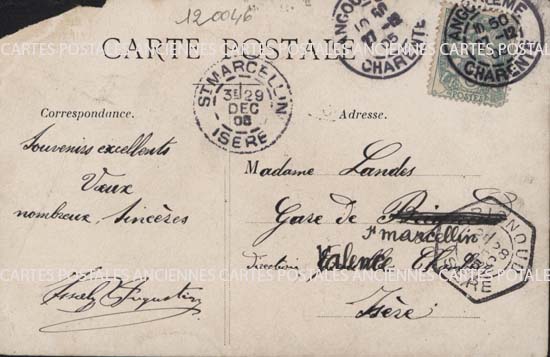 120046
CARTE POSTALE
ANGOULEME
CHARENTE
ANGOULEME
CHARENTE
ST MARCELLIN
3E 29
DEC
06
ISERE
Correspondance.
Adresse.
Souvenirs excellents
Vœux
nombreux, sincères
Madame Landes
Gare de
St marcellin
Direction Valence
Isère
CARTES POSTALES ANCIENNES CARTES POSTALES ANCIENNES CARTES POSTALES ANCIENNES
CARTES POSTALES ANCIENNES CARTES POSTALES ANCIENNES CARTES POSTALES ANCIENNES